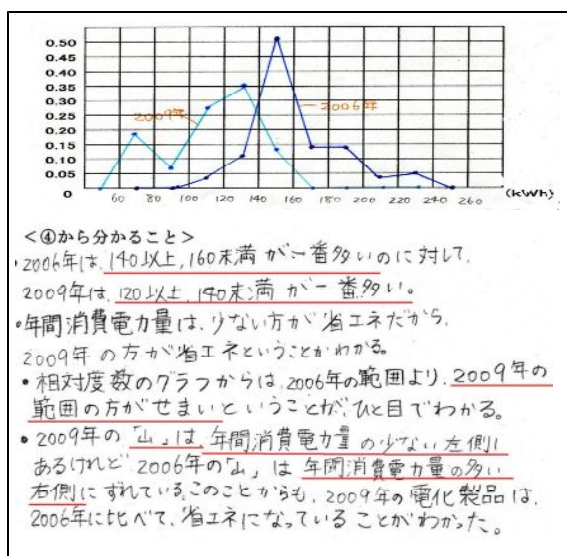 0.50
0.45
0.40
0.35
0.30
0.25
0.20
0.15
0.10
0.05
0
2009年
2006年
60 80 100 120 140 160 180 200 220 240 260 (kWh)
<④から分かること>
・2006年は、140以上、160未満が一番多いのに対して、
2009年は、120以上、140未満が一番多い。
・年間消費電力量は、少ない方が省エネだから、
2009年の方が省エネということがわかる。
・相対度数のグラフからは、2006年の範囲より、2009年の
範囲の方がせまいということが、ひと目でわかる。
・2009年の「山」は、年間消費電力量の少ない左側に
あるけれど2006年の「山」は年間消費電力量の多い
右側にずれている。このことからも、2009年の電化製品は、
2006年に比べて、省エネになっていることがわかった。